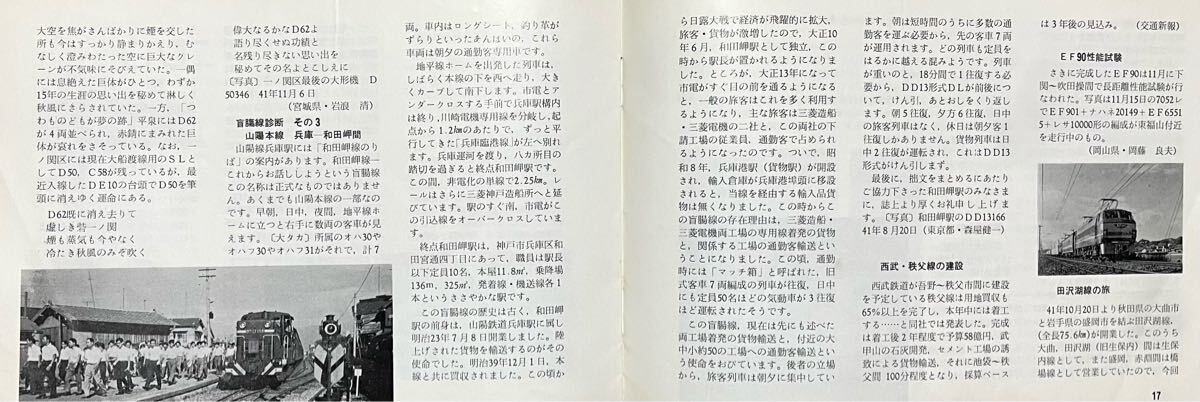 大空を焦がさんばかりに煙を交した
所も今はすっかり静まりかえり、む
なしく澄みわたった空に巨大なクレ
ーンが不気味にそびえていた。一偶
には息絶えた巨体がひとつ、わずか
15年の生涯の思い出を秘めて淋しく
秋風にさらされていた。一方、「つ
わものどもが夢の跡」平泉にはD62
が4両並べられ、赤錆にまみれた巨
体が哀れをさそっている。なお、一
ノ関区には現在大船渡線用のSLと
してD50、C58が残っているが、最
近入線したDE10の台頭でD50を筆
頭に消えゆく運命にある。
D62既に消え去りて
虚しき砦一ノ関
煙も蒸気も今やなく
冷たき秋風のみぞ吹く
偉大なるかなD62よ
語り尽くせぬ功績と
名残り尽きない思い出を
秘めてその名よとこしえに
〔写真〕一ノ関区最後の大形機 D
50346 41年11月6日
(宮城県・岩浪 清)
盲腸線診断 その3
山陽本線 兵庫―和田岬間
山陽線兵庫駅には「和田岬線のり
ば」の案内があります。和田岬線―
これからお話ししようという盲腸線
この名称は正式なものではありませ
ん。あくまでも山陽本線の一部なの
です。早朝、日中、夜間、地平線ホー
ムに立つと右手に数両の客車が見
えます。〔大タカ〕所属のオハ30や
オハフ30やオハフ31がそれで、計7
両。車内はロングシート、釣り革が
ずらりといったあんばいの、これら
車両は朝夕の通勤客専用車です。
地平線ホームを出発した列車は、
しばらく本線の下を西へ走り、大き
くカーブして南下します。市電とア
ンダークロスする手前で兵庫駅構内
は終り、川崎電機専用線を分岐し、起
点から1.2㎞のあたりで、ずっと平
行してきた「兵庫臨港線」が左へ別れ
ます。兵庫運河を渡り、八カ所目の
踏切を過ぎると終点和田岬駅です。
この間、非電化の単線で2.25㎞。レ
ールはさらに三菱神戸造船所へと延
びています。駅のすぐ南、市電がこ
の引込線をオーバークロスしていま
す。
終点和田岬駅は、神戸市兵庫区和
田宮通四丁目にあって、職員は駅長
以下定員10名、本屋11.8㎡、乗降場
136m、325㎡、発着線・機送線各1
本というささやかな駅です。
この盲腸線の歴史は古く、和田岬
駅の前身は、山陽鉄道兵庫駅に属し
明治23年7月8日開業しました。陸
上げされた貨物を輸送するのがその
使命でした。明治39年12月1日、本
線と共に買収されました。この頃か
ら日露大戦で経済が飛躍的に拡大、
旅客・貨物が激増したので、大正10
年6月、和田岬駅として独立、この
時から駅長が置かれるようになりま
した。ところが、大正13年になって
市電がすぐ目の前を通るようになる
と、一般の旅客はこれを多く利用す
るようになり、主な旅客は三菱造船
・三菱電機の二社と、この両社の下
請工場の従業員、通勤客で占められ
るようになったのです。ついで、昭
和8年、兵庫港駅(貨物駅)が開設
され、輸入倉庫が兵庫港埠頭に移設
されると、当線を経由する輸入品貨
物は無くなりました。この時からこ
の盲腸線の存在理由は、三菱造船・
三菱電機両工場の専用線着発の貨物
と、関係する工場の通勤客輸送とい
うことになりました。この頃、通勤
時には「マッチ箱」と呼ばれた、旧
式客車7両編成の列車が往復、日中
にも定員50名ほどの気動車が3往復
ほど運転されたそうです。
この盲腸線、現在は先にも述べた
両工場着発の貨物輸送と、付近の大
中小約50の工場への通勤客輸送とい
う使命をおびています。後者の立場
から、旅客列車は朝夕に集中してい
ます。朝は短時間のうちに多数の通
勤客を運ぶ必要から、先の客車7両
が運用されます。どの列車も定員を
はるかに越える混みようです。列車
が重いのと、18分間で1往復する必
要から、DD13形式DLが前後につ
いて、けん引、あとおしをくり返し
ます。朝5往復、夕方6往復、日中
の旅客列車はなく、休日は朝夕客1
往復しかありません。貨物列車は日
中2往復が運転され、これはDD13
形式がけん引します。
最後に、拙文をまとめるにあたり
ご協力下さった和田岬駅のみなさま
に、誌上より厚くお礼申し上げま
す。〔写真〕和田岬駅のDD13166
41年8月20日(東京都・森屋健一)
西武・秩父線の建設
西武鉄道が吾野〜秩父市間に建設
を予定している秩父線は用地買収も
65%以上を完了し、本年中には着工
する……と同社では発表した。完成
は着工後2年程度で予算58億円、武
甲山の石灰開発、セメント工場の誘
致による貨物輸送、それに池袋〜秩
父間100分程度となり、採算ベース
は3年後の見込み。 (交通新報)
EF90性能試験
さきに完成したEF90は11月に下
関〜吹田操間で長距離性能試験が行
なわれた。写真は11月15日の7052レ
でEF901+ナハネ20149+EF6551
5+レサ10000形の編成が東福山付近
を走行中のもの。
(岡山県・岡藤 良夫)
田沢湖線の旅
41年10月20日より秋田県の大曲市
と岩手県の盛岡市を結ぶ田沢湖線、
(全長75.6㎞)が開業した。このうち
大曲、田沢湖(旧生保内)間は生保
内線として、また盛岡、赤渕間は橋
場線として営業していたので、今回
17